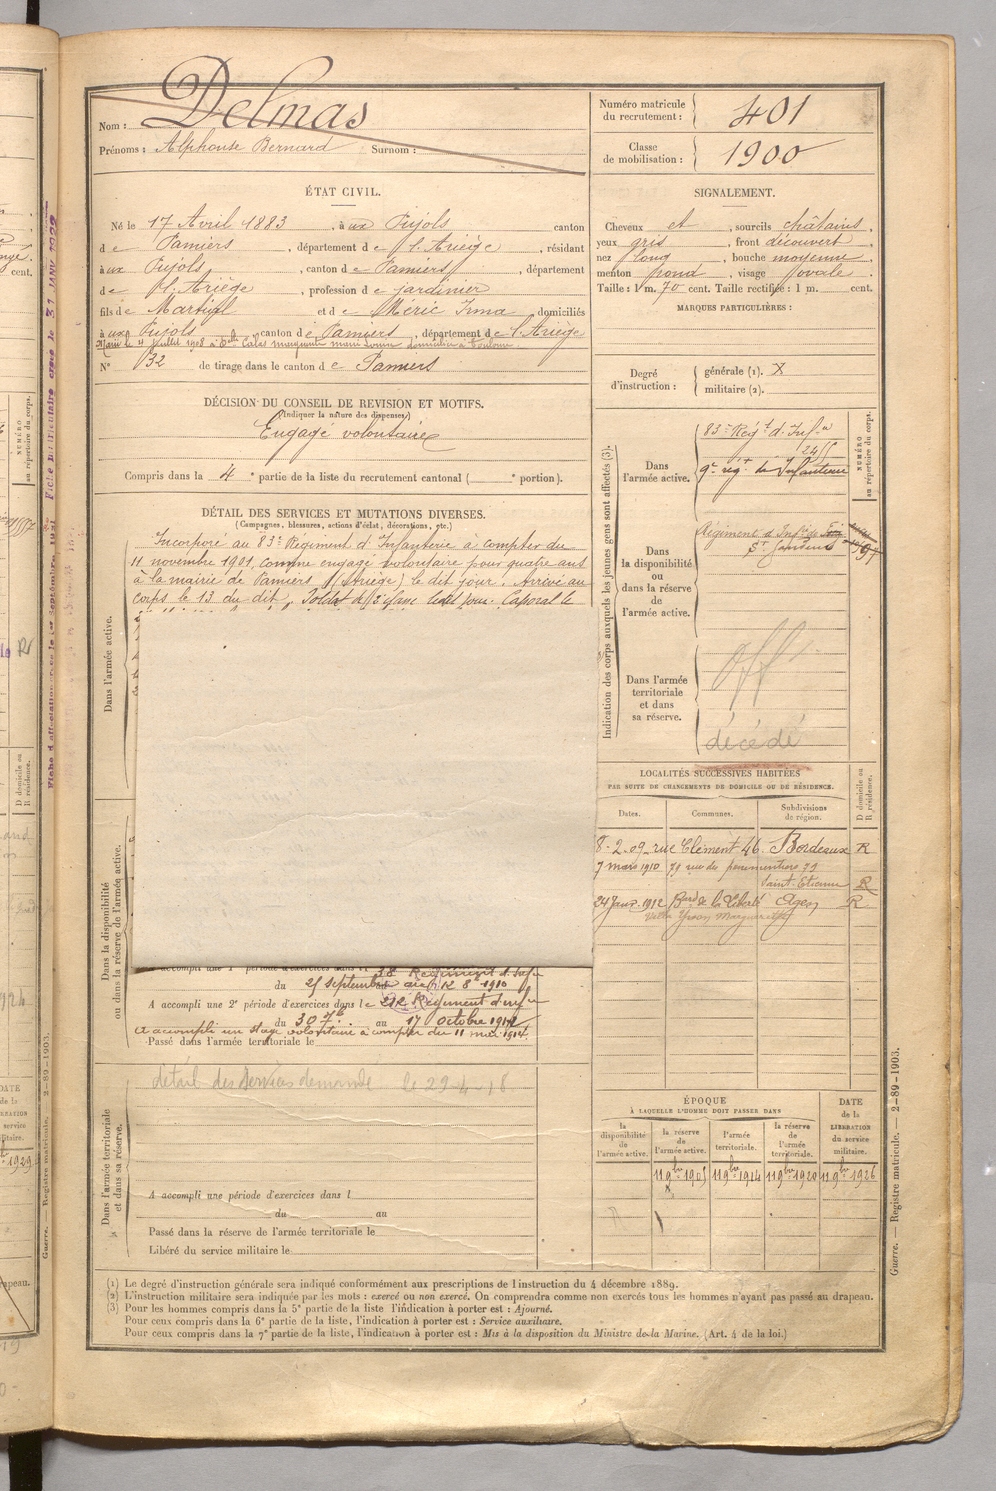 Nom : Delmas
Prénoms : Alphonse Bernard Surnom :
Numéro matricule
du recrutement : 401
Classe
de mobilisation : 1900
ÉTAT CIVIL.
Né le 17 Avril 1883, à ux Pujols canton
de Pamiers, département de l'Ariège, résidant
à ux Pujols, canton de Pamiers, département
de l'Ariège, profession de jardinier
fils de Martial et de Méric Irma, domiciliés
à aux Pujols, canton de Pamiers, département de l'Ariège
N° 32 de tirage dans le canton de Pamiers
SIGNALEMENT.
Cheveux et, sourcils châtains,
yeux gris, front découvert
nez long, bouche moyenne,
menton rond, visage ovale
Taille : 1 m. 70 cent. Taille rectifiée : 1 m. cent.
MARQUES PARTICULIÈRES :
Degré
d'instruction :
générale (1). X
militaire (2).
DÉCISION DU CONSEIL DE REVISION ET MOTIFS.
(Indiquer la nature des dispenses)
Engagé volontaire
Compris dans la 4e partie de la liste du recrutement cantonal ( e portion).
DÉTAIL DES SERVICES ET MUTATIONS DIVERSES.
(Campagnes, blessures, actions d'éclat, décorations, etc.)
Incorporé au 83e Régiment d'Infanterie à compter du
11 novembre 1901, comme engagé volontaire pour quatre ans
à la mairie de Pamiers (Ariège) le dit jour. Arrivé au
corps le 13 du dit, Soldat de 2e classe ledit jour. Caporal le
Dans l'armée active.
Dans la disponibilité
ou dans la réserve de l'armée active.
A accompli une 1e période d'exercices dans l
du 25 septembre au 8 1910
A accompli une 2e période d'exercices dans le 212 Régiment d'inf
du 30 7bre au 17 octobre 1912
a accompli un stage volontaire à compter du 11 mai 1914.
Passé dans l'armée territoriale le
Dans l'armée territoriale
et dans sa réserve.
détail des services demandé le 29-4-18
A accompli une période d'exercices dans l
du au
Passé dans la réserve de l'armée territoriale le
Libéré du service militaire le
Indication des corps auxquels les jeunes gens sont affectés (3).
NUMÉRO
au répertoire du corps.
Dans
l'armée active.
83e Régt d'Infie
9e régt d'Infanterie
Dans
la disponibilité
ou
dans la réserve
de
l'armée active.
Régiment d'Infie de
Dans l'armée
territoriale
et dans
sa réserve.
Off
décédé
LOCALITÉS SUCCESSIVES HABITÉES
PAR SUITE DE CHANGEMENTS DE DOMICILE OU DE RÉSIDENCE.
Dates. Communes. Subdivisions
de région.
D domicile ou
R résidence.
8-2-09 rue Clément 46. Bordeaux R
7 mars 1910 79 rue des
Saint-Etienne R
24 Janv. 1912 Bard de la Liberté Agen R
ÉPOQUE
À LAQUELLE L'HOMME DOIT PASSER DANS
la
disponibilité
de
l'armée active.
la réserve
de
l'armée active.
l'armée
territoriale.
la réserve
de
l'armée
territoriale.
DATE
de la
LIBÉRATION
du service
militaire.
11 9bre 1905 11 9bre 1914 11 9bre 1920 11 9bre 1926
(1) Le degré d'instruction générale sera indiqué conformément aux prescriptions de l'instruction du 4 décembre 1889.
(2) L'instruction militaire sera indiquée par les mots : exercé ou non exercé. On comprendra comme non exercés tous les hommes n'ayant pas passé au drapeau.
(3) Pour les hommes compris dans la 5e partie de la liste l'indication à porter est : Ajourné.
Pour ceux compris dans la 6e partie de la liste, l'indication à porter est : Service auxiliaire.
Pour ceux compris dans la 7e partie de la liste, l'indication à porter est : Mis à la disposition du Ministre de la Marine. (Art. 4 de la loi.)
Guerre. — Registre matricule. — 2-89-1903.